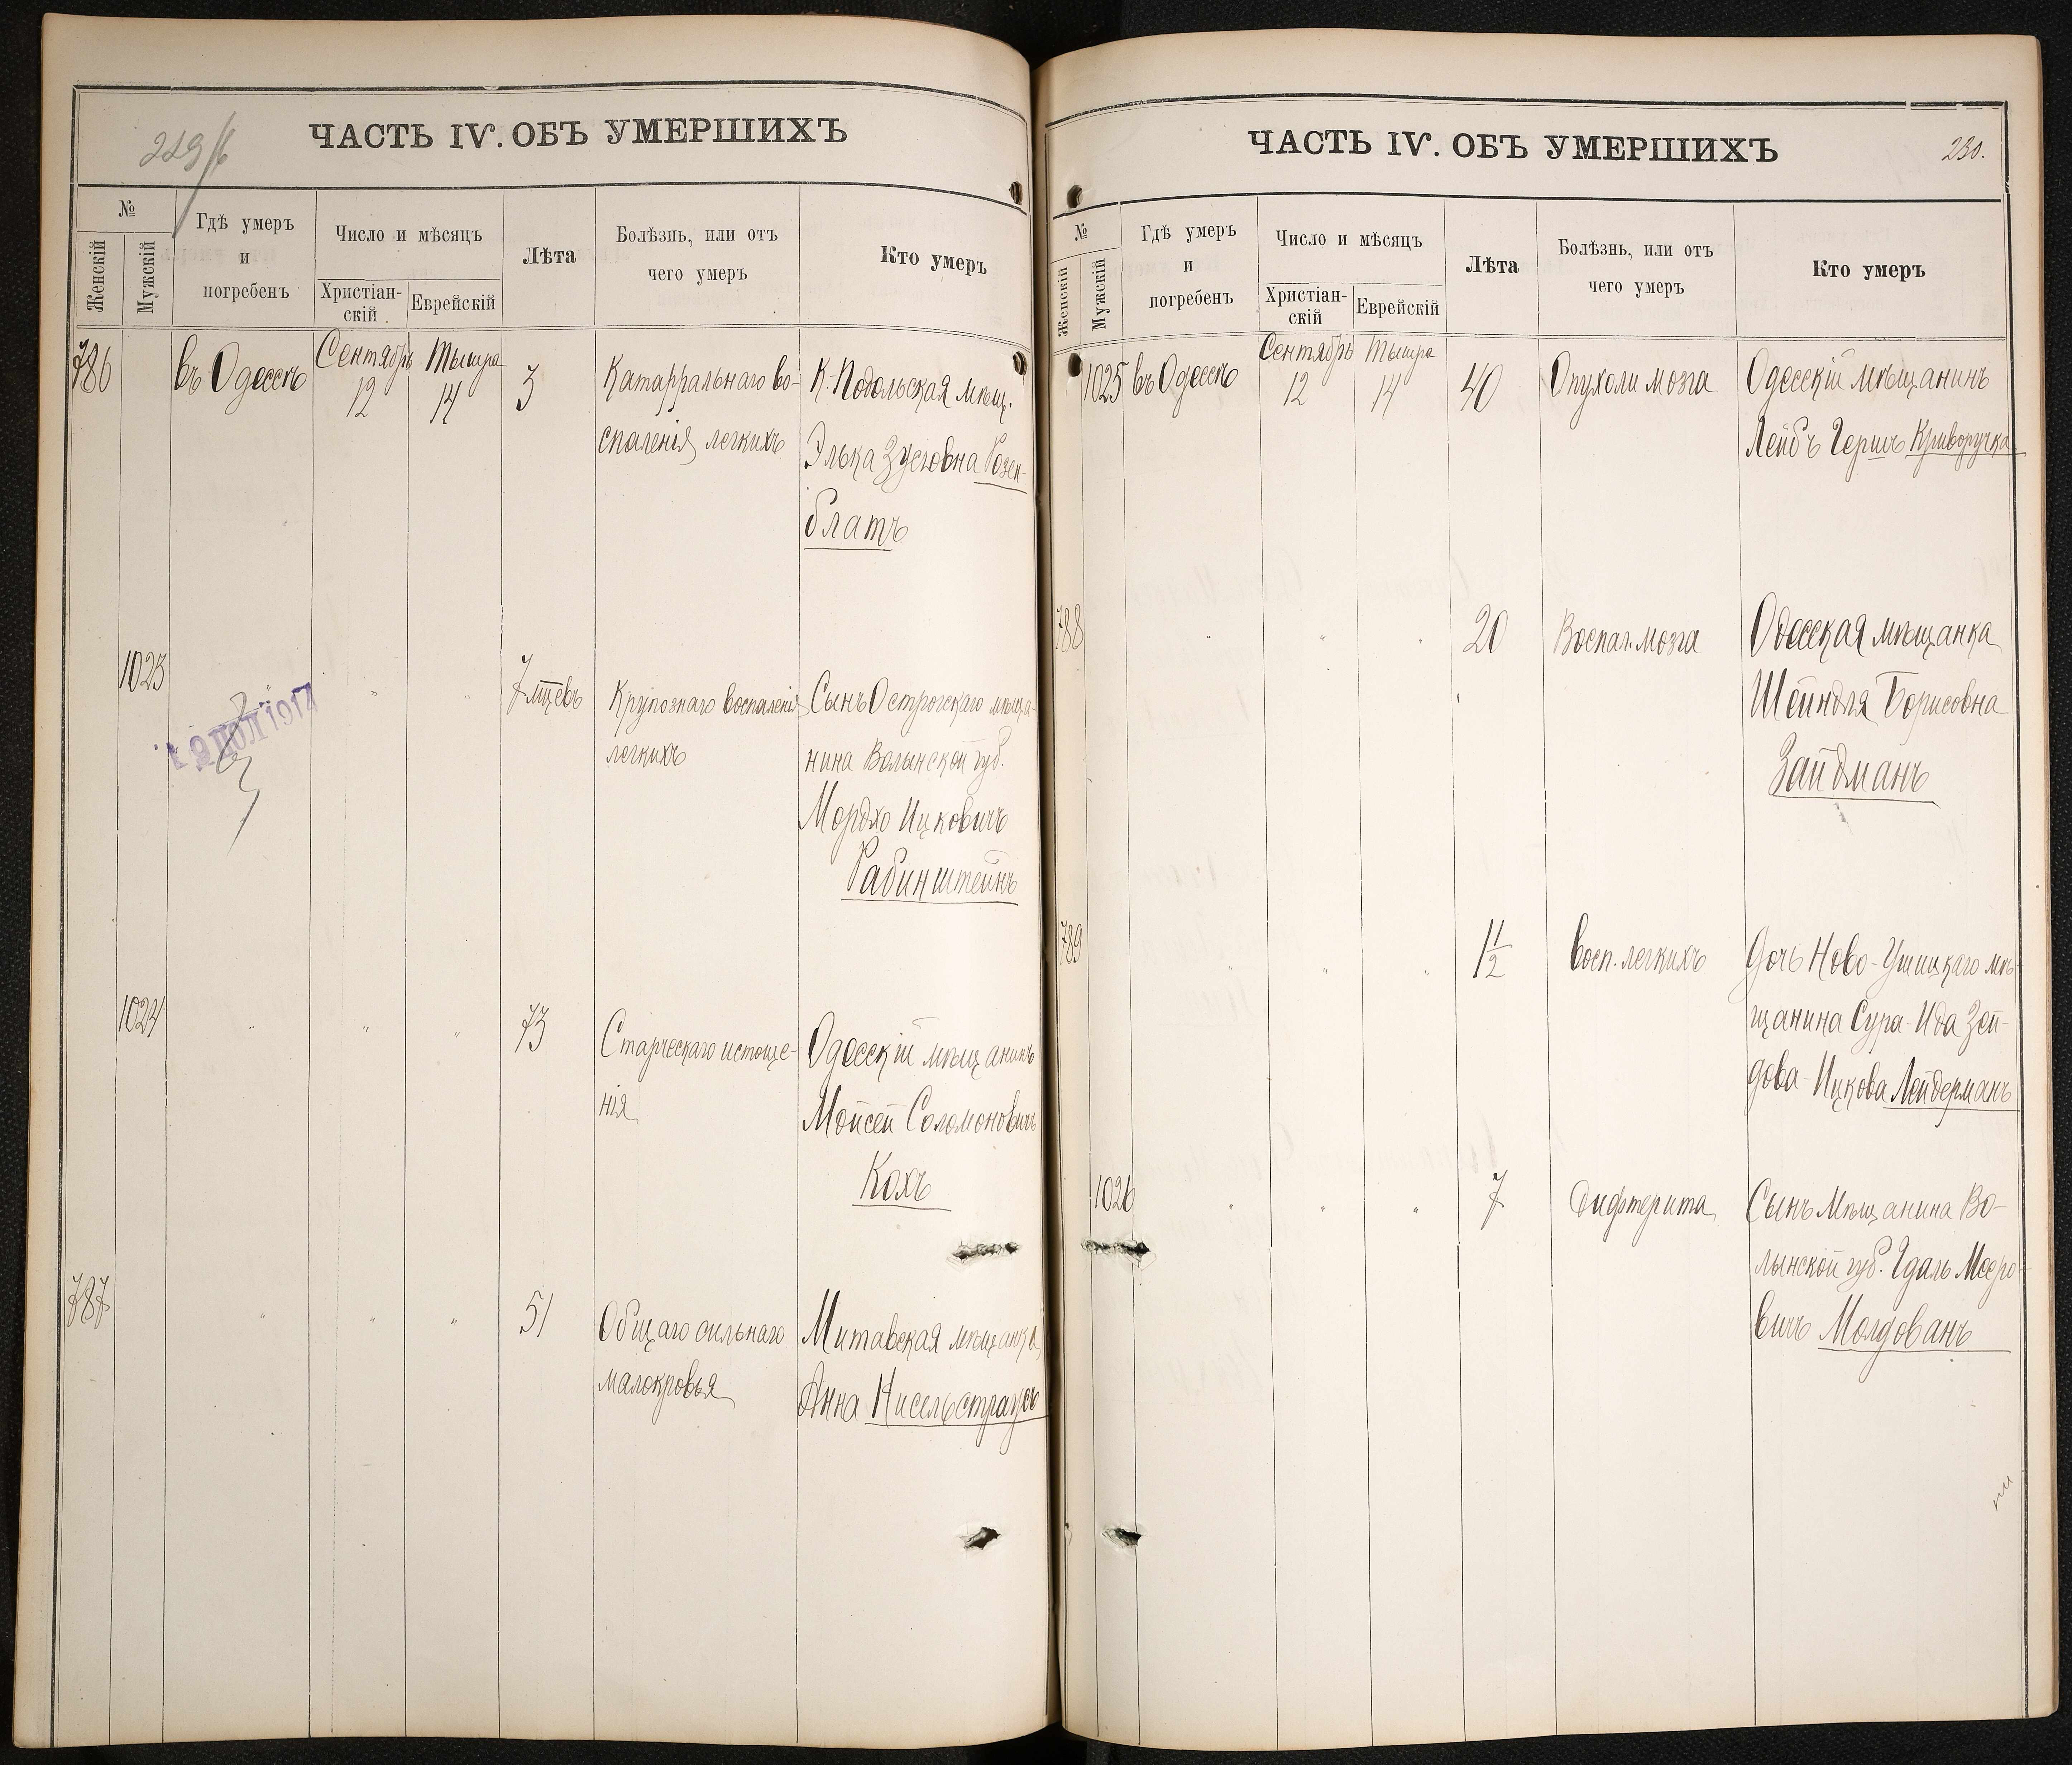 229/б
ЧАСТЬ IV. ОБЪ УМЕРШИХЪ
№
Женскій
Мужскій
Гдѣ умеръ
и
погребенъ
Число и мѣсяцъ
Христіан-
скій
Еврейскій
Лѣта
Болѣзнь, или отъ
чего умеръ
Кто умеръ
786 въ Одессѣ Сентябрь 12 Тышра 14 3 Катаррального во- К.-Подольская мѣщ.
спаленія легкихъ Элька Зусіовна Розен-
блатъ
1023 " " " 7 мцевъ Крупознаго воспаленія Сынъ Острогскаго мѣща-
легкихъ нина Волынской губ.
Мордхо Ицковичъ
Рабинштейнъ
12 ИЮЛ 1917
1024 " " " 73 Старческаго истоще- Одесскій мѣщанинъ
нія Мойсей Соломоновичъ
Кохъ
787 " " " 51 Общаго сильнаго Митавская мѣщанка
малокровья Анна Нисельстраусъ
ЧАСТЬ IV. ОБЪ УМЕРШИХЪ
230.
№
Женскій
Мужскій
Гдѣ умеръ
и
погребенъ
Число и мѣсяцъ
Христіан-
скій
Еврейскій
Лѣта
Болѣзнь, или отъ
чего умеръ
Кто умеръ
1025 въ Одессѣ Сентябрь 12 Тышра 14 40 Опухоли мозга Одесскій мѣщанинъ
Лейбъ Гершъ Криворучка
788 " " " 20 Воспал. мозга Одесская мѣщанка
Шейндля Борисовна
Зайдманъ
789 " " " 1½ Восп. легкихъ Дочь Ново-Ушицкаго мѣ-
щанина Сура-Ида Зей-
дова-Ицкова Лейдерманъ
1026 " " " 7 Дифтерита Сынъ Мѣщанина Во-
лынской губ. Гдаль Мееро-
вичъ Молдованъ